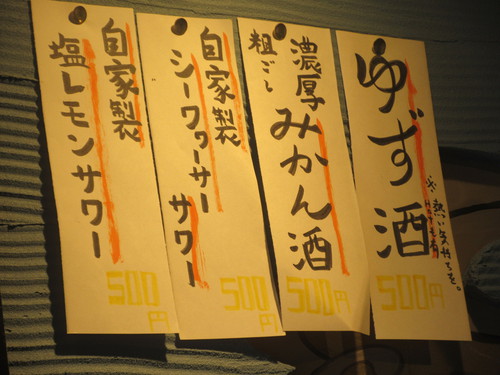 ゆず酒
熱い気持ちを。
500円
濃厚
粗ごし
みかん酒
500円
自家製
シークワーサー
サワー
500円
自家製
塩レモンサワー
500円